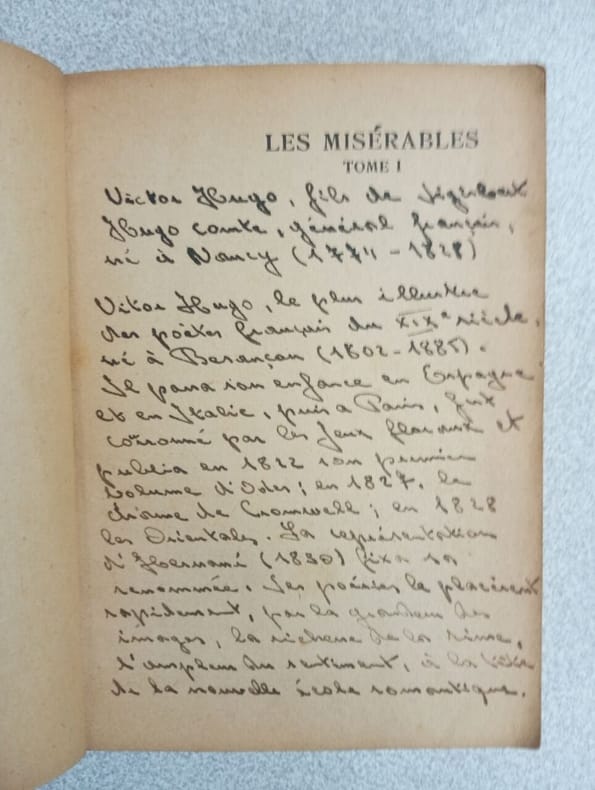 LES MISÉRABLES
TOME I
Victor Hugo, fils de Sigisbert
Hugo comte, général français,
né à Nancy (1774-1828)
Victor Hugo, le plus illustre
des poètes français du XIXe siècle,
né à Besançon (1802-1885).
Il passa son enfance en Espagne
et en Italie, puis à Paris, fut
couronné par les Jeux floraux et
publia en 1822 son premier
volume d'Odes; en 1827, le
drame de Cromwell; en 1828
les Orientales. La représentation
d'Hernani (1830) fixa sa
renommée. Ses poésies le placèrent
rapidement, par la grandeur des
images, la richesse de la rime,
l'ampleur du sentiment, à la tête
de la nouvelle école romantique.